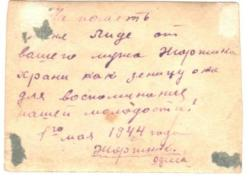 На память
жене Лиде от
вашего мужа Жоржика
Храни как зеницу ока
для воспоминание
нашей молодости!
1го мая 1944 года
Жоржик.